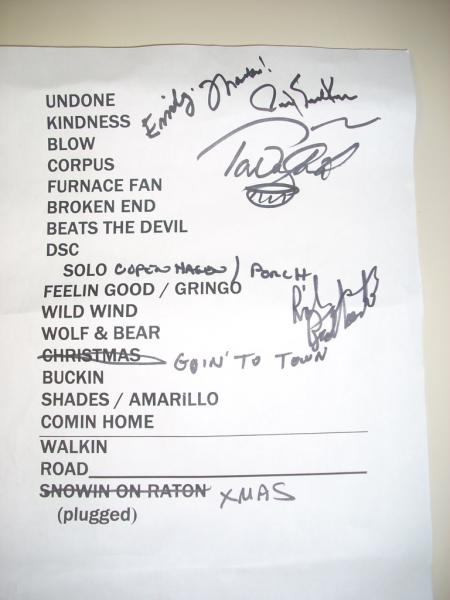 UNDONE
Emily. Thanks!
KINDNESS
BLOW
CORPUS
FURNACE FAN
BROKEN END
BEATS THE DEVIL
DSC
SOLO COPENHAGEN / PORCH
FEELIN GOOD / GRINGO
WILD WIND
WOLF & BEAR
CHRISTMAS GOIN' TO TOWN
BUCKIN
SHADES / AMARILLO
COMIN HOME
WALKIN
ROAD
SNOWIN ON RATON XMAS
(plugged)